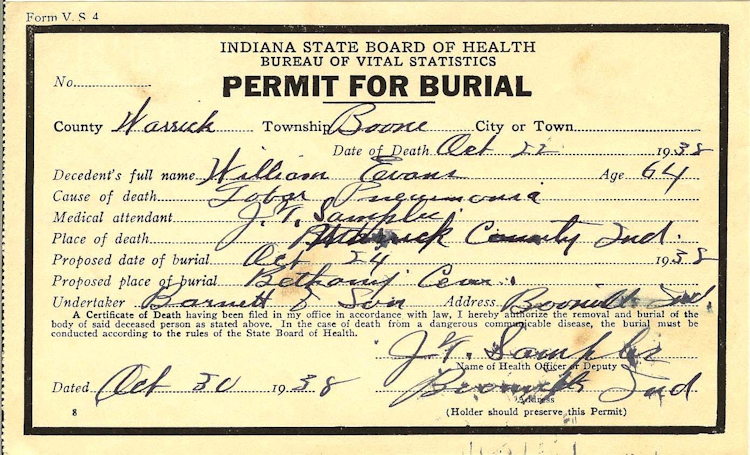 Form V. S 4
INDIANA STATE BOARD OF HEALTH
BUREAU OF VITAL STATISTICS
No.
PERMIT FOR BURIAL
County Warrick Township Boone City or Town
Date of Death Oct 22 1938
Decedent's full name William Evans Age 64
Cause of death Lobar Pneumonia
Medical attendant J. T. Samples
Place of death Warrick County Ind.
Proposed date of burial Oct 24 1938
Proposed place of burial Bethany Cem.
Undertaker Barnett & Son Address Boonville Ind.
A Certificate of Death having been filed in my office in accordance with law, I hereby authorize the removal and burial of the
body of said deceased person as stated above. In the case of death from a dangerous communicable disease, the burial must be
conducted according to the rules of the State Board of Health.
J. T. Samples
Name of Health Officer or Deputy
Dated Oct 30 1938 Boonville Ind
Address
8 (Holder should preserve this Permit)